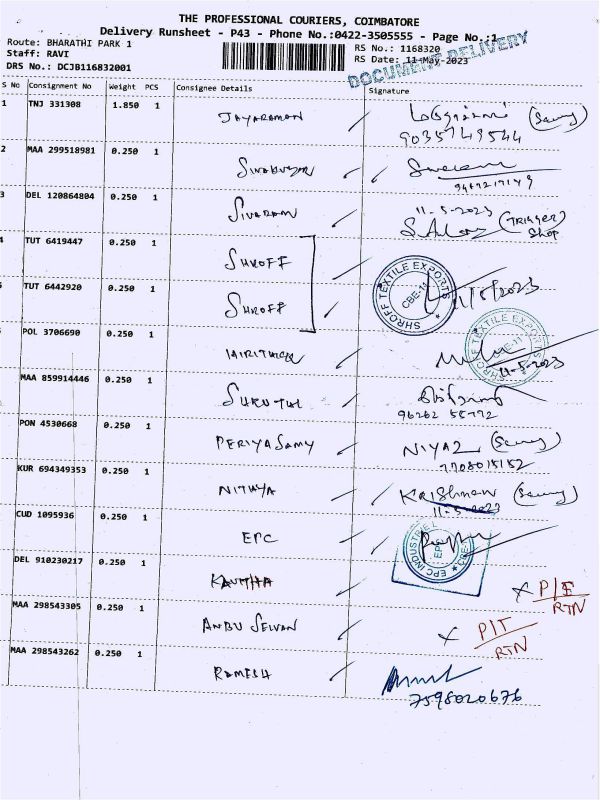 THE PROFESSIONAL COURIERS, COIMBATORE
Delivery Runsheet - P43 - Phone No.:0422-3505555 - Page No.:1
Route: BHARATHI PARK 1
RS No.: 1168320
Staff: RAVI
RS Date: 11-May-2023
DRS No.: DCJB116832001
DOCUMENT DELIVERY
S No Consignment No Weight PCS Consignee Details Signature
1 TNJ 331308 1.850 1 JAYARAMAN
9035749544
2 MAA 299518981 0.250 1
3 DEL 120864804 0.250 1 SIVARAM 11-5-2023
(TRIGGER) Shop
4 TUT 6419447 0.250 1 SHROFF
SHROFF TEXTILE EXPORTS CBE-11
11/5/2023
5 TUT 6442920 0.250 1 SHROFF
SHROFF TEXTILE EXPORTS
POL 3706690 0.250 1
11-5-2023
MAA 859914446 0.250 1
PON 4530668 0.250 1 PERIYASAMY NIYAZ
7708015152
KUR 694349353 0.250 1 NITHYA Krishnan
11-5-2023
CUD 1095936 0.250 1 EPC
EPC INDUSTRIE L
DEL 910230217 0.250 1
X P/F
RTN
MAA 298543305 0.250 1 ANBU SELVAN X P/T
RTN
MAA 298543262 0.250 1 RAMESH
7598020676